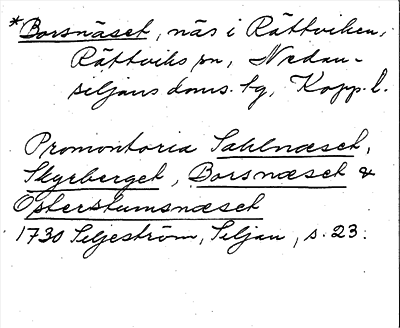 *Borsnäset, näs i Rättviken,
Rättviks sn, Nedan-
siljans doms. tg, Kopp. l.
Promontoria Sahlnæset,
Skyrberget, Borsnæset &
Östersturnsnæset
1730 Siljeström, Siljan, s. 23.